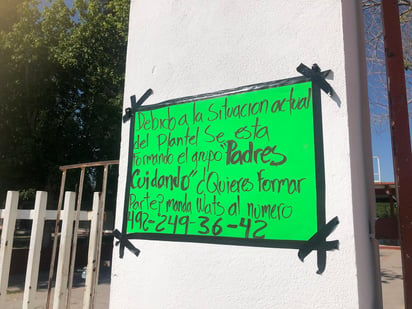 Debido a la Situación actual
del Plantel Se esta
formando el grupo "Padres
Cuidando" ¿Quieres Formar
Parte? manda Wats al número
492-249-36-42